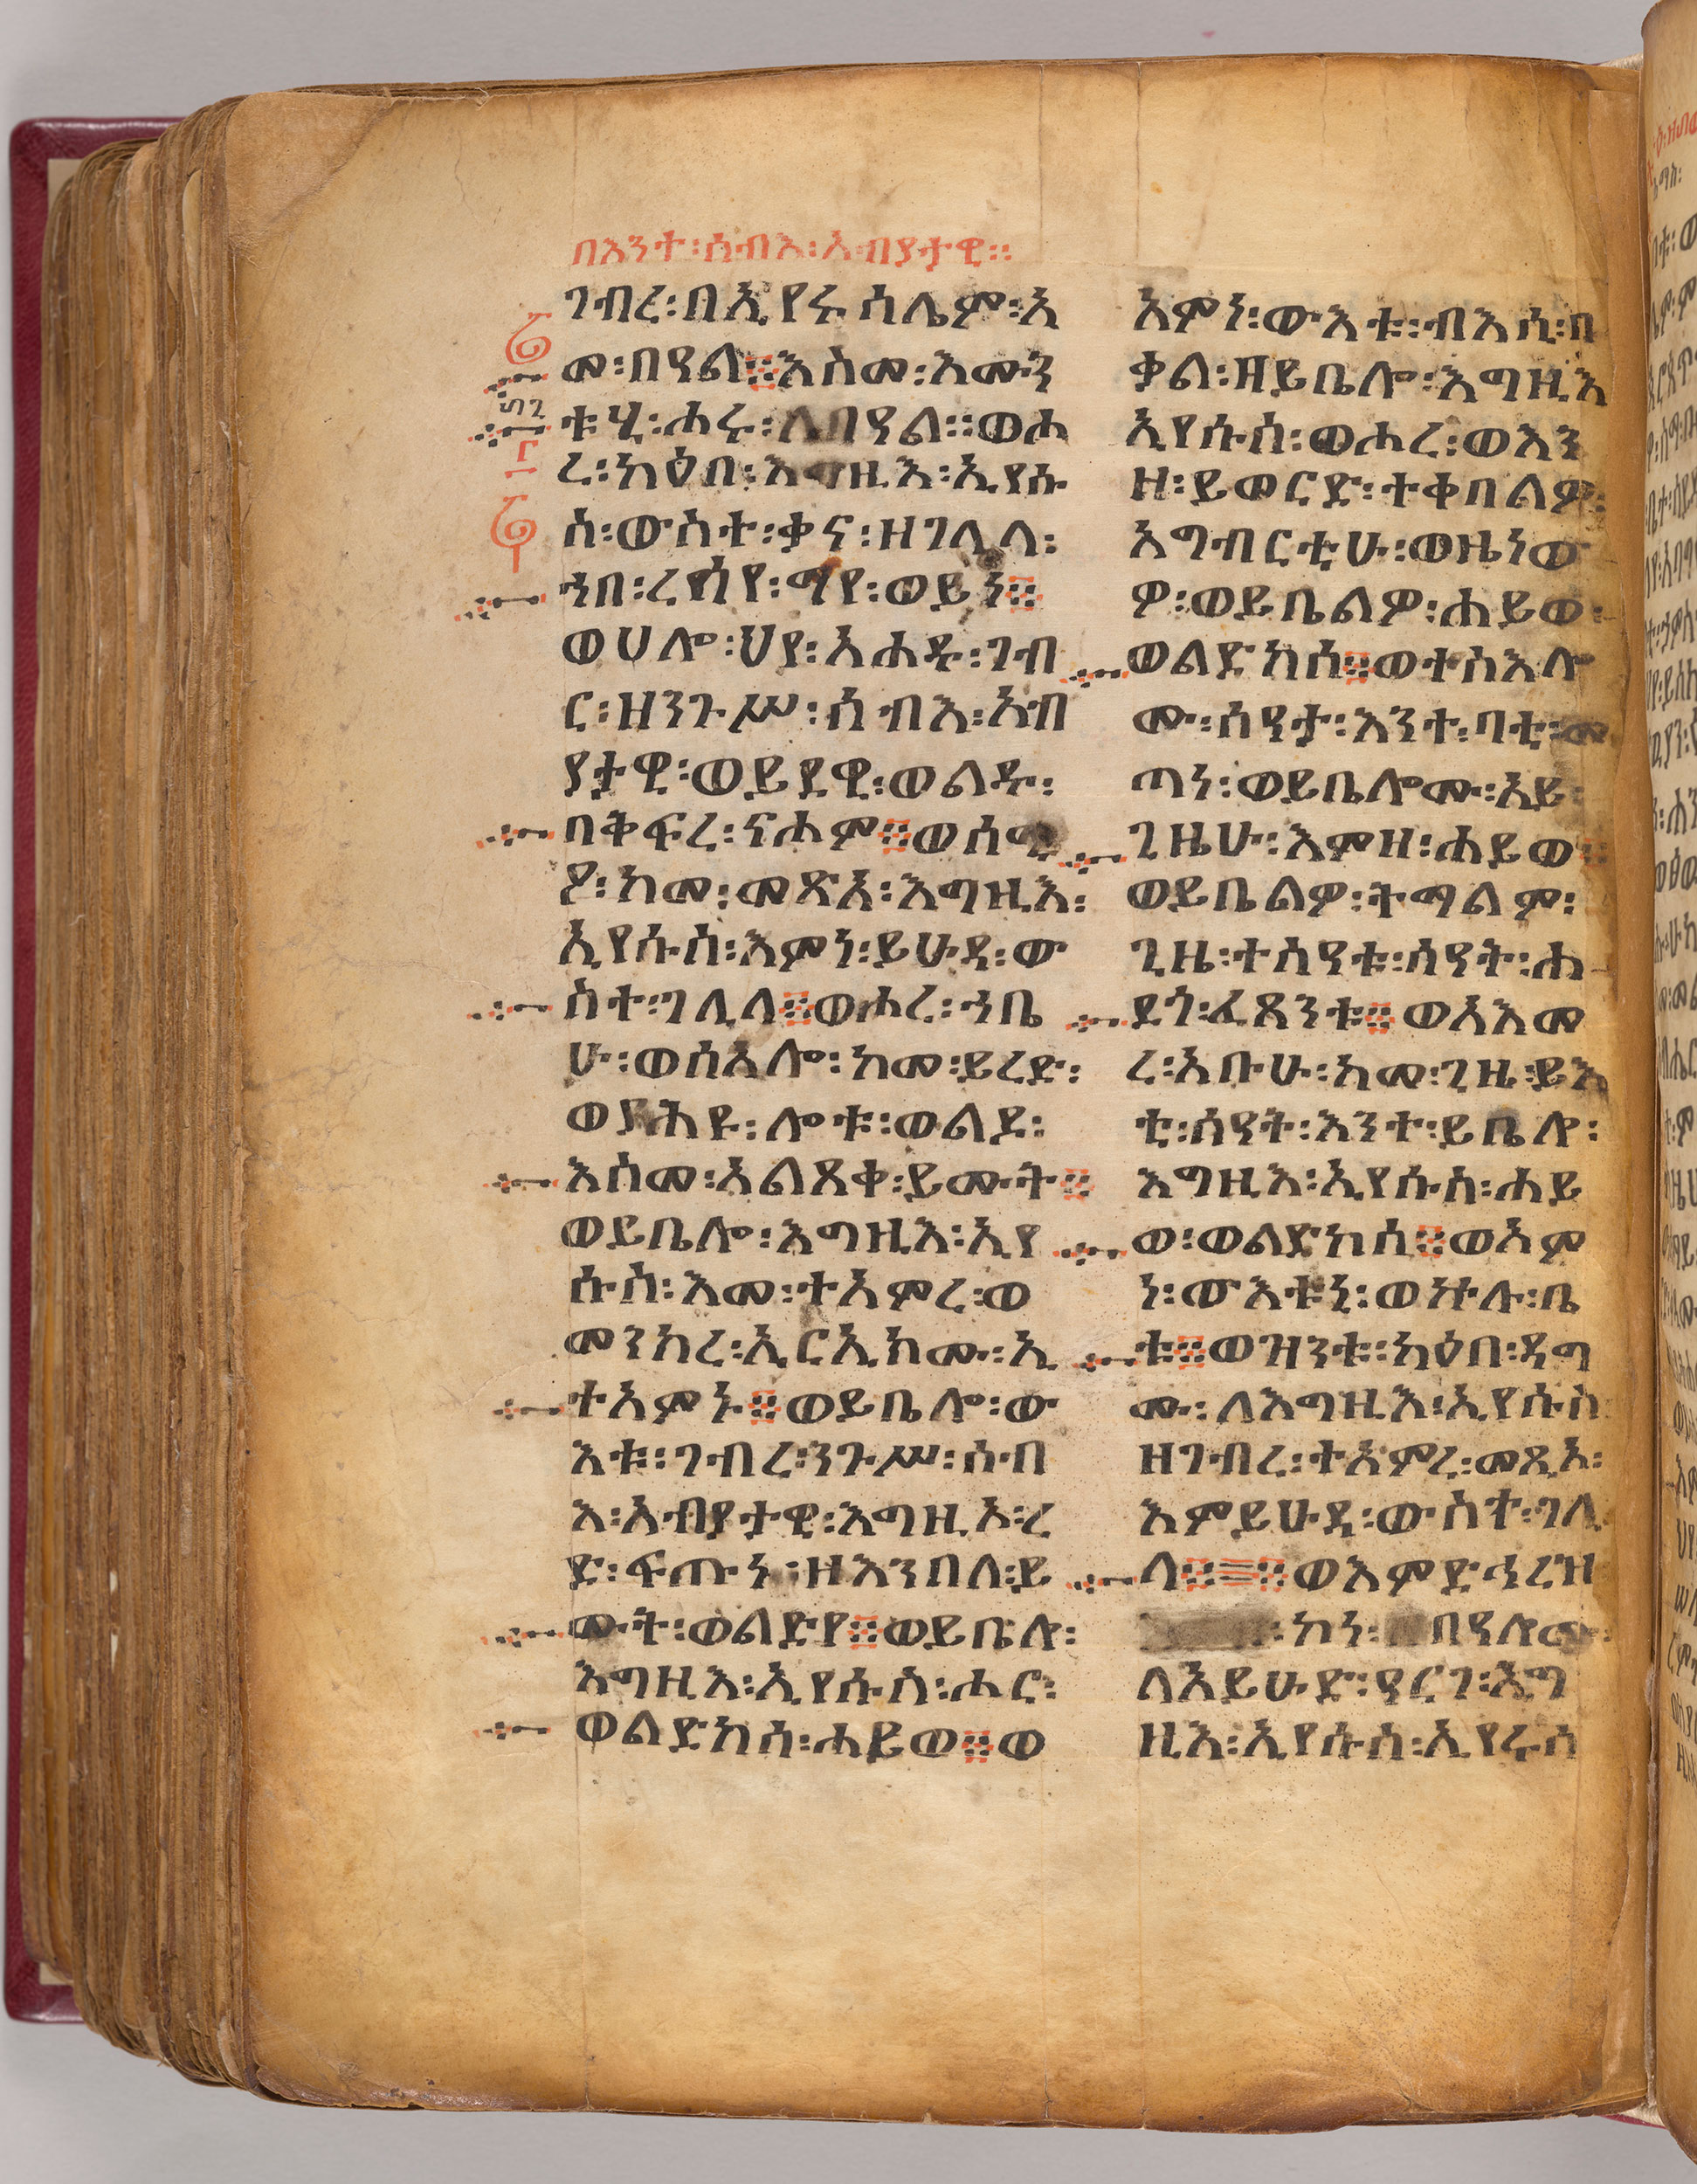 በእንተ፡ሰብእ፡አብያታዊ፡፡
ገብረ፡በኢየሩሳሌም፡አ
መ፡በዓል፡፡እስመ፡እሙን
ቱሂ፡ሖሩ፡ለበዓል፡፡ወሖ
ረ፡ካዕበ፡እግዚእ፡ኢየሱ
ስ፡ውስተ፡ቃና፡ዘገሊላ፡
ኀበ፡ረሰየ፡ማየ፡ወይነ፡፡
ወሀሎ፡ህየ፡አሐዱ፡ገብ
ር፡ዘንጉሥ፡ሰብእ፡አብ
ያታዊ፡ወይደዊ፡ወልዱ፡
በቅፍረ፡ናሖም፡፡ወሰሚ
ዖ፡ከመ፡መጽአ፡እግዚእ፡
ኢየሱስ፡እምነ፡ይሁዳ፡ው
ስተ፡ገሊላ፡፡ወሖረ፡ኀቤ
ሁ፡ወሰአሎ፡ከመ፡ይረድ፡
ወያሕዩ፡ሎቱ፡ወልዶ፡
እስመ፡አልጸቀ፡ይሙት፡፡
ወይቤሎ፡እግዚእ፡ኢየ
ሱስ፡እመ፡ተአምረ፡ወ
መንክረ፡ኢርኢክሙ፡ኢ
ተአምኑ፡፡ወይቤሎ፡ው
እቱ፡ገብረ፡ንጉሥ፡ሰብ
እ፡አብያታዊ፡እግዚኦ፡ረ
ድ፡ፍጡነ፡ዘእንበለ፡ይ
ሙት፡ወልድየ፡፡ወይቤሎ፡
እግዚእ፡ኢየሱስ፡ሖር፡
ወልድከሰ፡ሐይወ፡፡ወ
አምነ፡ውእቱ፡ብእሲ፡በ
ቃል፡ዘይቤሎ፡እግዚእ
ኢየሱስ፡ወሖረ፡ወእን
ዘ፡ይወርድ፡ተቀበልዎ፡
አግብርቲሁ፡ወዜነው
ዎ፡ወይቤልዎ፡ሐይወ፡
ወልድከሰ፡፡ወተስእሎ
ሙ፡ሰዓታ፡እንተ፡ባቲ፡መ
ጣነ፡ወይቤሎሙ፡አይ፡
ጊዜሁ፡እምዘ፡ሐይወ፡፡
ወይቤልዎ፡ትማልም፡
ጊዜ፡ተስዓቱ፡ሰዓት፡ሐ
ደጎ፡ፈጸንቱ፡፡ወአእመ
ረ፡አቡሁ፡ከመ፡ጊዜ፡ይእ
ቲ፡ሰዓት፡እንተ፡ይቤሎ፡
እግዚእ፡ኢየሱስ፡ሐይ
ወ፡ወልድከሰ፡፡ወአም
ነ፡ውእቱኒ፡ወኵሉ፡ቤ
ቱ፡፡ወዝንቱ፡ካዕበ፡ዳግ
ሙ፡ለእግዚእ፡ኢየሱስ
ዘገብረ፡ተአምረ፡መጺኦ፡
እምይሁዳ፡ውስተ፡ገሊ
ላ፡፡፡፡ወእምድኅረዝ
፡ኮነ፡በዓሎሙ፡
ለአይሁድ፡ዓርገ፡እግ
ዚእ፡ኢየሱስ፡ኢየሩሳ